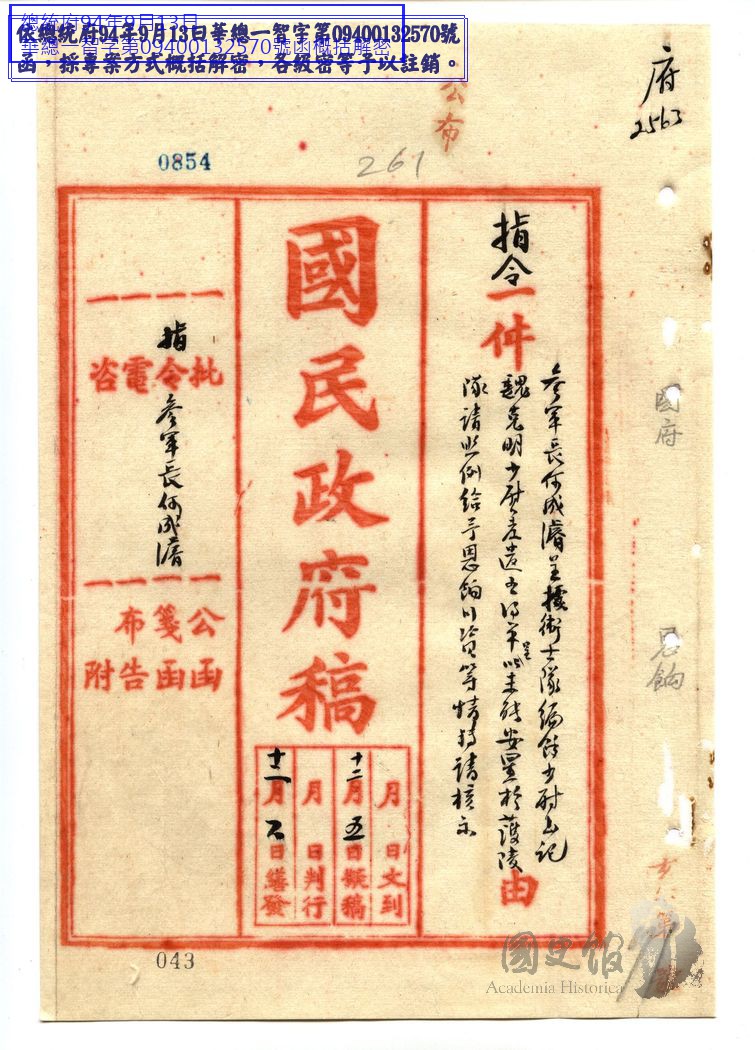 總統府94年9月13日
華總一智字第09400132570號函概括解密
依總統府94年9月13日華總一智字第09400132570號
函，採專案方式概括解密，各級密等予以註銷。
公布
府
2563
0854
261
指令一件
參軍長何成濬呈據衛士隊編餘少尉書記
魏克明少尉
隊請照例給予恩餉川資等情轉請核示
由
國民政府稿
月 日文到
十二月五日擬稿
月 日判行
十二月 日繕發
指
批令電咨
參軍長何成濬
公函
箋函
布告
附
國府
恩餉
043
國史館
Academia Historica